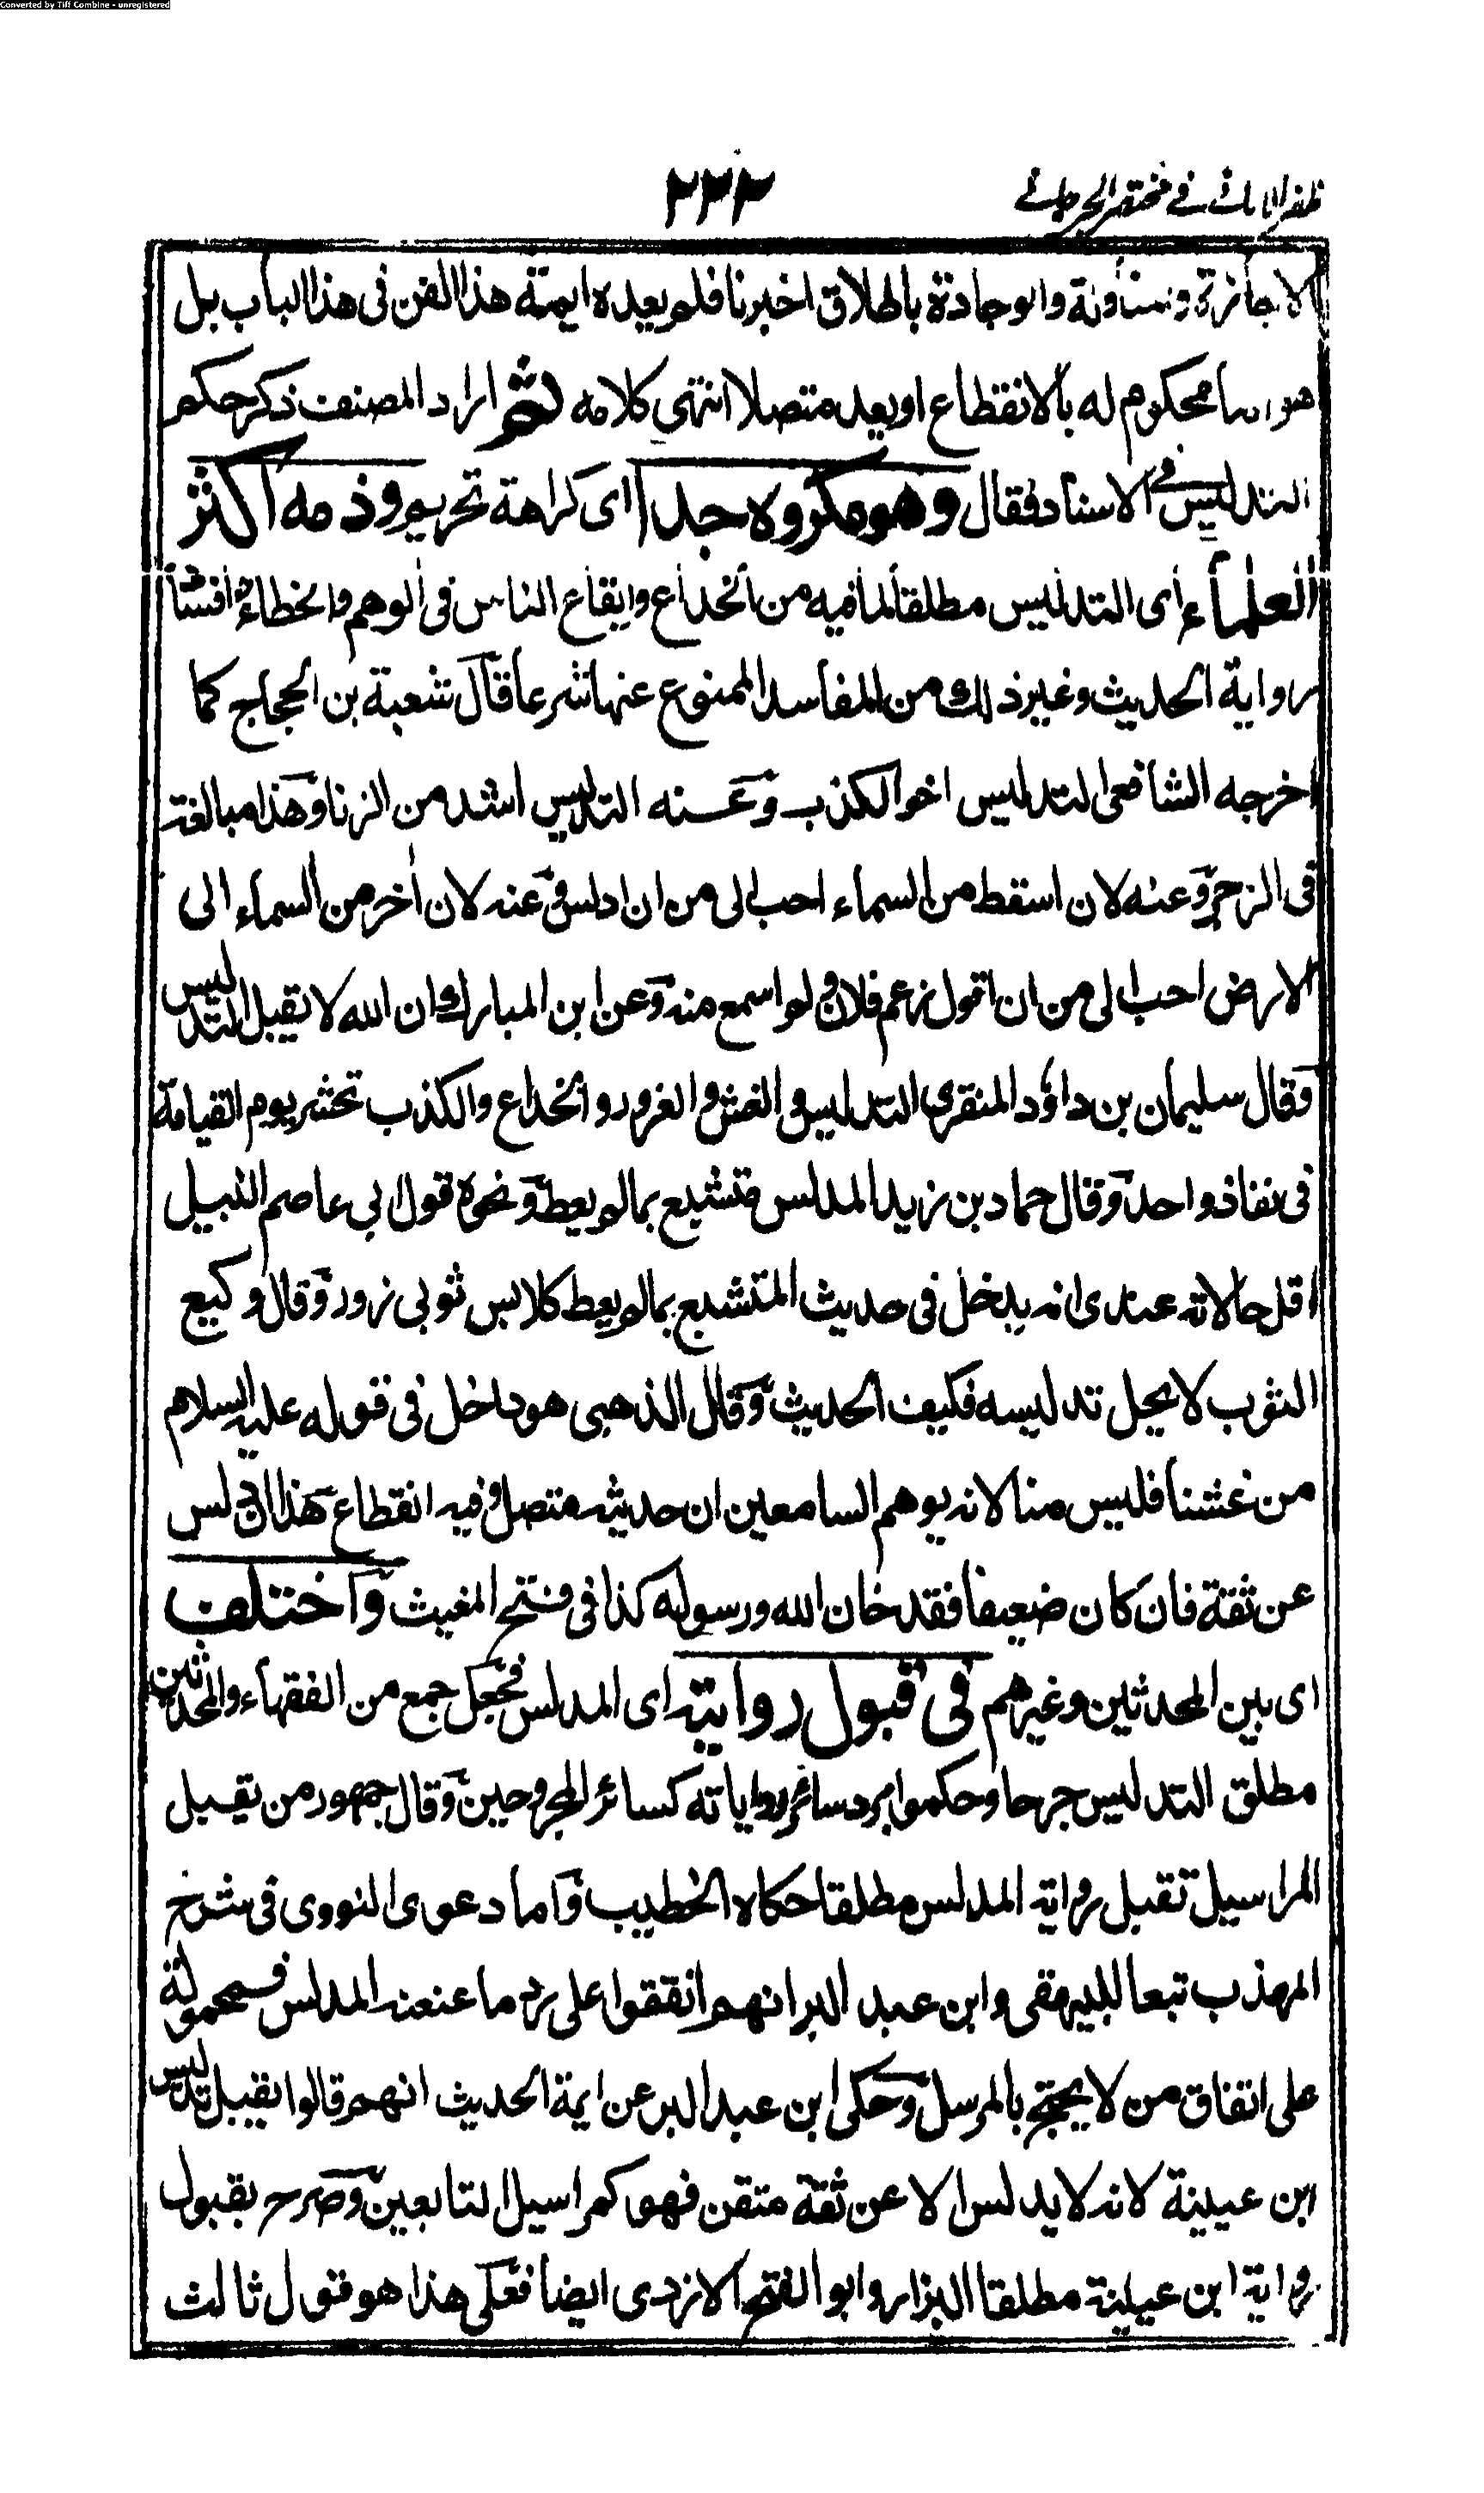 Converted by Tiff Combine - unregistered
ظفر الاماني في مختصر الجرجاني
۲۲۲
الاجازة والمناولة والوجادة بالهلاق اخبرنا فلم يعده ايمة هذا الفن فى هذا الباب بل
هو اما محكوم له بالانقطاع او يعد متصلا انتهى كلامه ثم اراد المصنف ذكر حكم
التدليس فى الاسناد فقال وهو مكروه جدا اى كراهة تحريم وذمه اكثر
العلماء اى التدليس مطلقا لما فيه من الخداع وايقاع الناس فى الوهم والخطاء وافشاء
رواية الحديث وغير ذلك من المفاسد الممنوع عنها شرعا قال شعبة بن الحجاج كما
اخرجه الشافعى التدليس اخو الكذب وعنه التدليس اشد من الزنا وهذا مبالغة
فى الزجر وعنه لان اسقط من السماء احب الى من ان ادلس وعنه لان اخر من السماء الى
الارض احب الى من ان اقول زعم فلان ولم اسمع منه وعن ابن المبارك ان الله لا يقبل التدليس
وقال سليمان بن داؤد المنقرى التدليس والغش والغرور والخداع والكذب تحشر يوم القيامة
فى نفاذ واحد وقال حماد بن زيد المدلس متشبع بما لم يعط ونحوه قول ابى عاصم النبيل
اقل حالاته عندى انه يدخل فى حديث المتشبع بما لم يعط كلابس ثوبى زور وقال وكيع
الثوب لا يحل تدليسه فكيف الحديث وقال الذهبى هو داخل فى قوله عليه السلام
من غشنا فليس منا لانه يوهم السامعين ان حديثه متصل وفيه انقطاع هذا ان دلس
عن ثقة فان كان ضعيفا فقد خان الله ورسوله كذا فى فتح المغيث واختلف
اى بين المحدثين وغيرهم فى قبول روايته اى المدلس فجعل جمع من الفقهاء والمحدثين
مطلق التدليس جرحا وحكموا برد سائر رواياته كسائر المجروحين وقال جمهور من يقبل
المراسيل تقبل رواية المدلس مطلقا حكاه الخطيب واما دعوى النووى فى شرح
المهذب تبعا للبيهقى وابن عبد البر انهم اتفقوا على رد ما عنعنه المدلس فمحمولة
على اتفاق من لا يحتج بالمرسل وحكى ابن عبد البر عن ايمة الحديث انهم قالوا يقبل تدليس
ابن عيينة لانه لا يدلس الا عن ثقة متقن فهو كمراسيل التابعين وصرح بقبول
رواية ابن عيينة مطلقا البزار وابو الفتح الازدى ايضا فعلى هذا هو قول ثالث